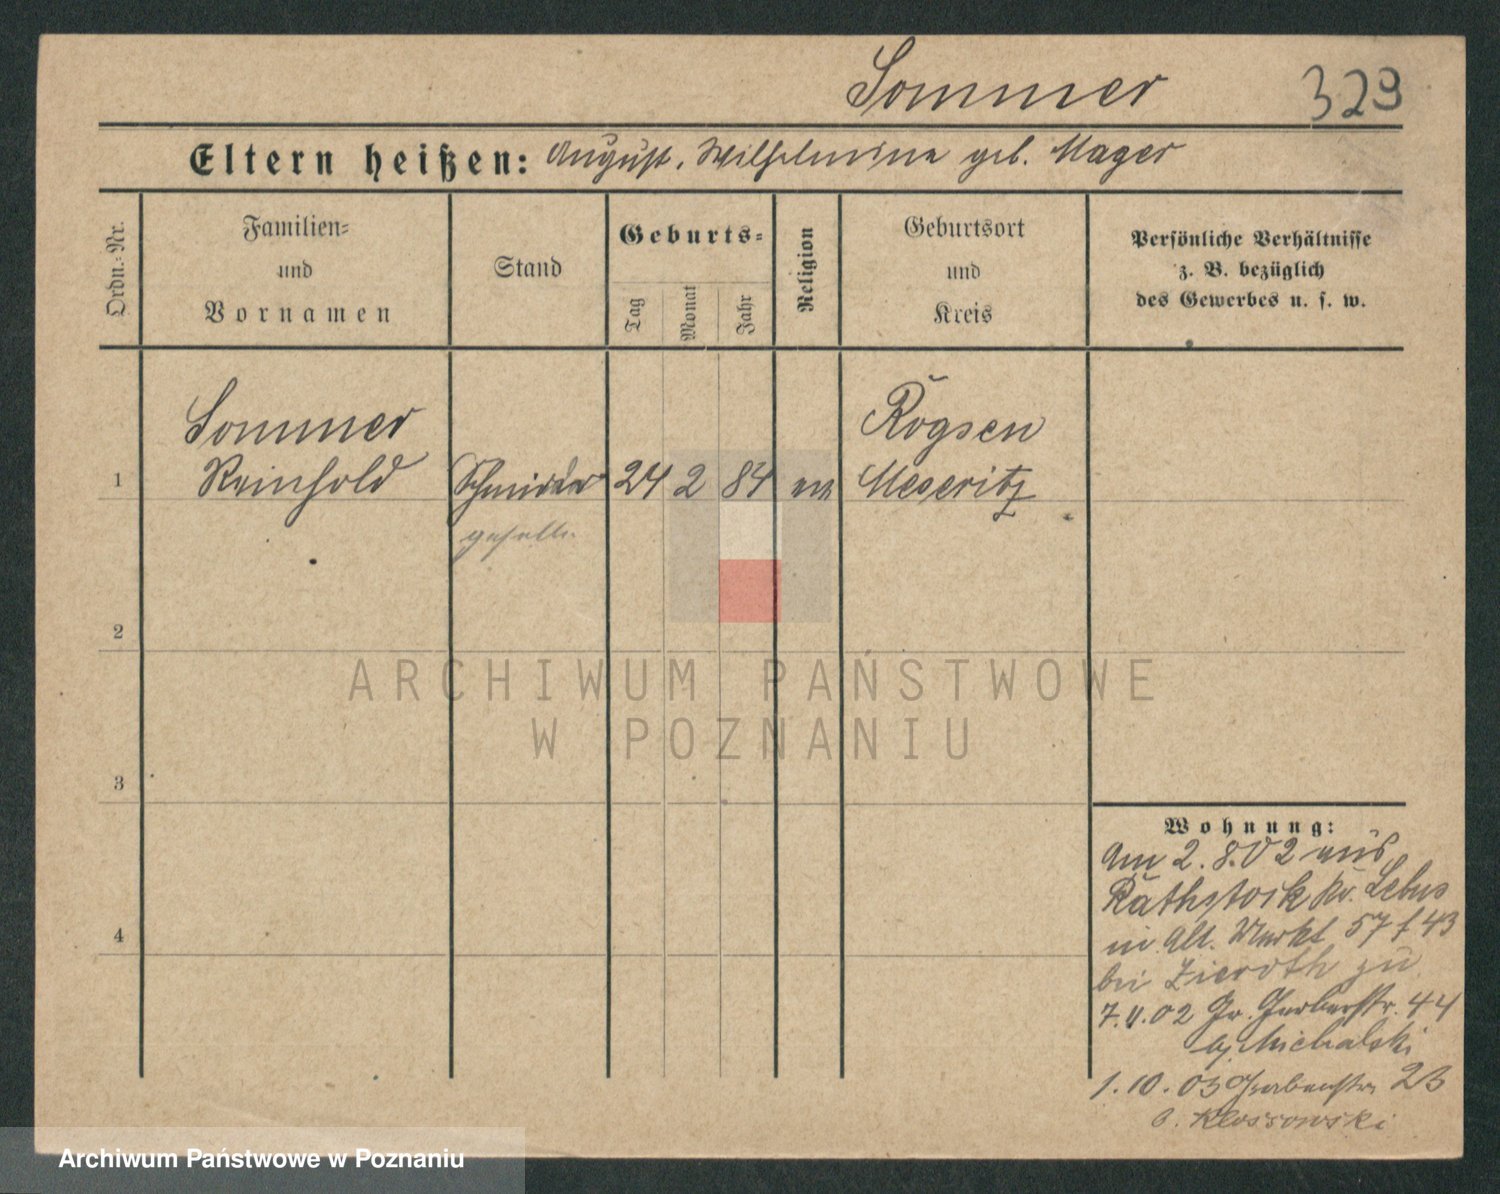 Sommer 329
Eltern heißen: August, Wilhelmine geb. Mager
Ordn.-Nr.
Familien-
und
Vornamen
Stand
Geburts-
Tag
Monat
Jahr
Religion
Geburtsort
und
Kreis
Persönliche Verhältnisse
z. B. bezüglich
des Gewerbes u. s. w.
Sommer
Reinhold
1
24 2 84
Rogsen
Meseritz
geselle
2
3
4
Wohnung:
Am 2.8.02 aus
Rathstock Kr. Lebus
in Alt. Markt 57 f 43
bei Zieroth zu
7.11.02 Gr. Gerberstr. 44
b/ Michalski
1.10.03 Grabenstr 23
b. Klossowski
ARCHIWUM PAŃSTWOWE
W POZNANIU
Archiwum Państwowe w Poznaniu